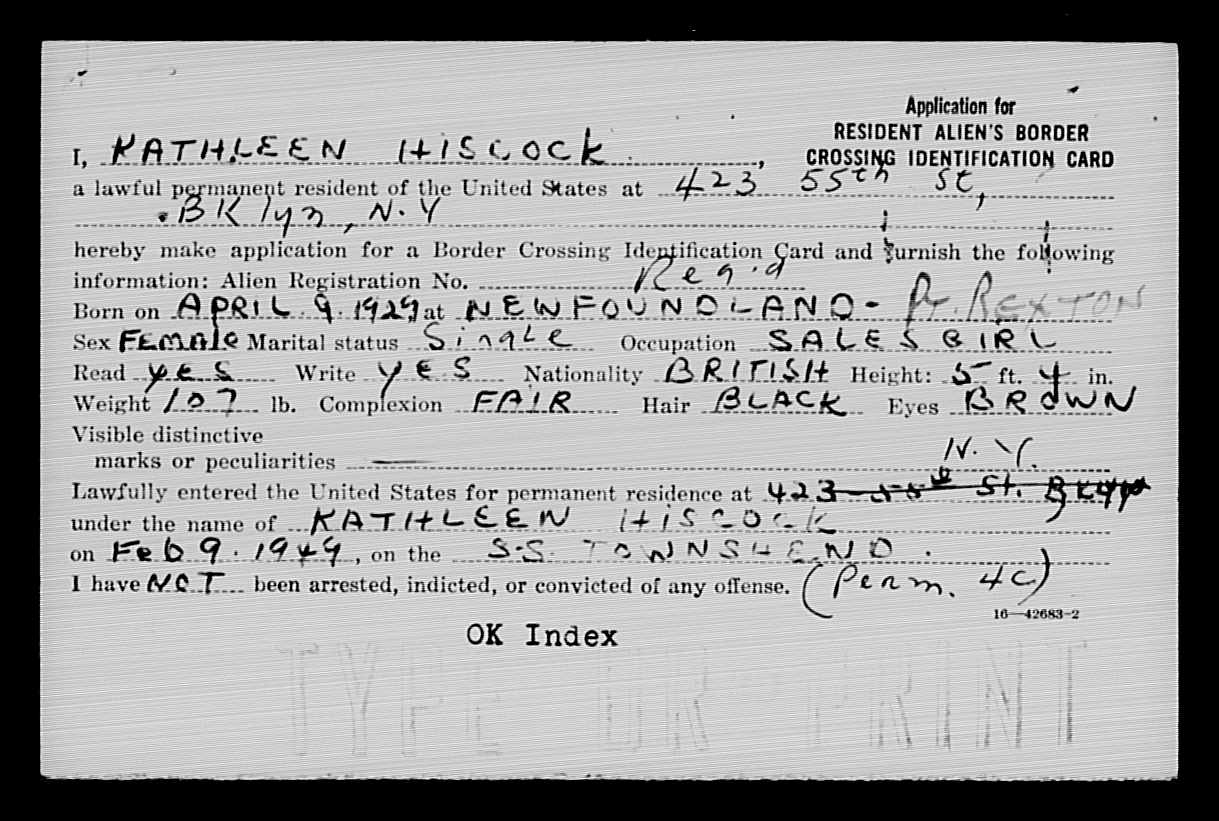 Application for
RESIDENT ALIEN'S BORDER
CROSSING IDENTIFICATION CARD
I, KATHLEEN HISCOCK,
a lawful permanent resident of the United States at 423 55th St,
BKlyn, N.Y
hereby make application for a Border Crossing Identification Card and furnish the following
information: Alien Registration No. Req'd
Born on APRIL 9. 1929 at NEWFOUNDLAND - Pt. REXTON
Sex FEMAle Marital status SingLe Occupation SALES GIRL
Read yES Write yES Nationality BRITISH Height: 5 ft. 4 in.
Weight 107 lb. Complexion FAIR Hair BLACK Eyes BROWN
Visible distinctive
marks or peculiarities —
N.Y.
Lawfully entered the United States for permanent residence at 423 55th St. Bklyn
under the name of KATHLEEN HiSCOCK
on Feb 9. 1949, on the S.S. TOWNSHEND.
I have NOT been arrested, indicted, or convicted of any offense. (Perm. 4c)
16—42683-2
OK Index
TYPE OR PRINT